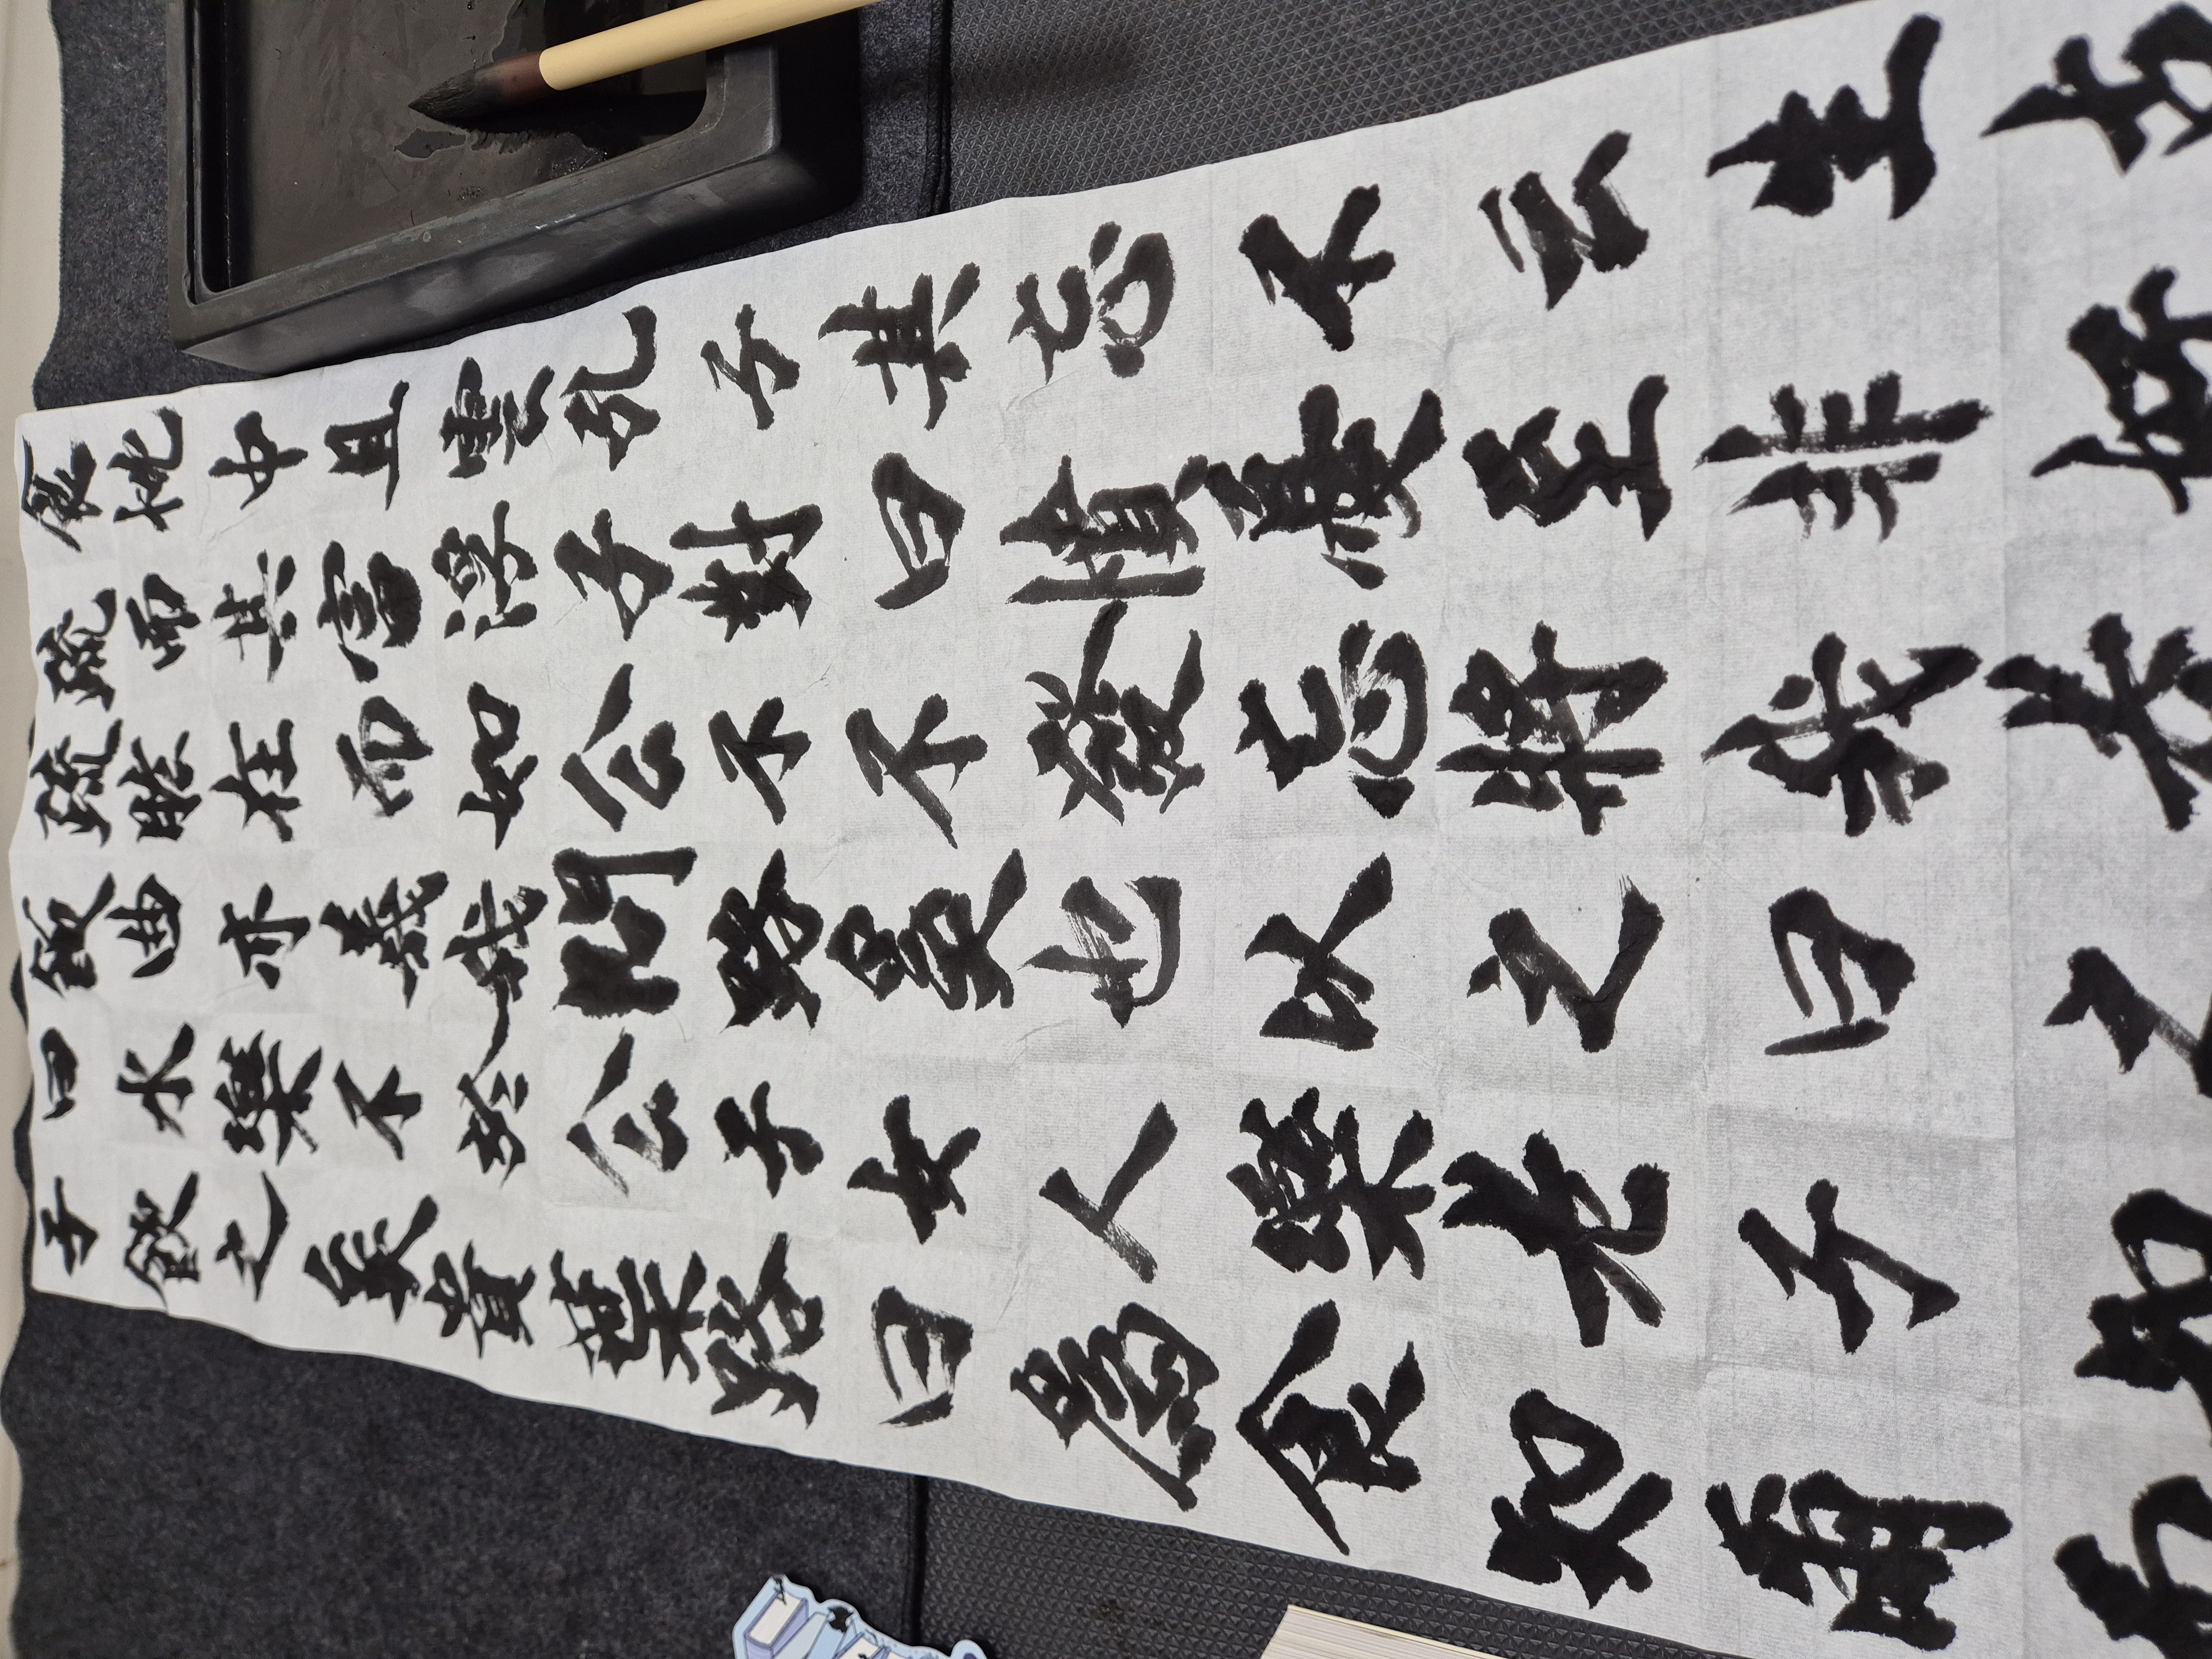 子曰飯疏疏食
飲水曲肱而枕
之樂亦在其中
矣不義而富且
貴於我如浮雲
葉公問公子孔
路子路不對子
曰女奚不曰其
為人也發憤忘
食樂以忘憂不
知老之將至云
爾子曰我非生
而知之者好